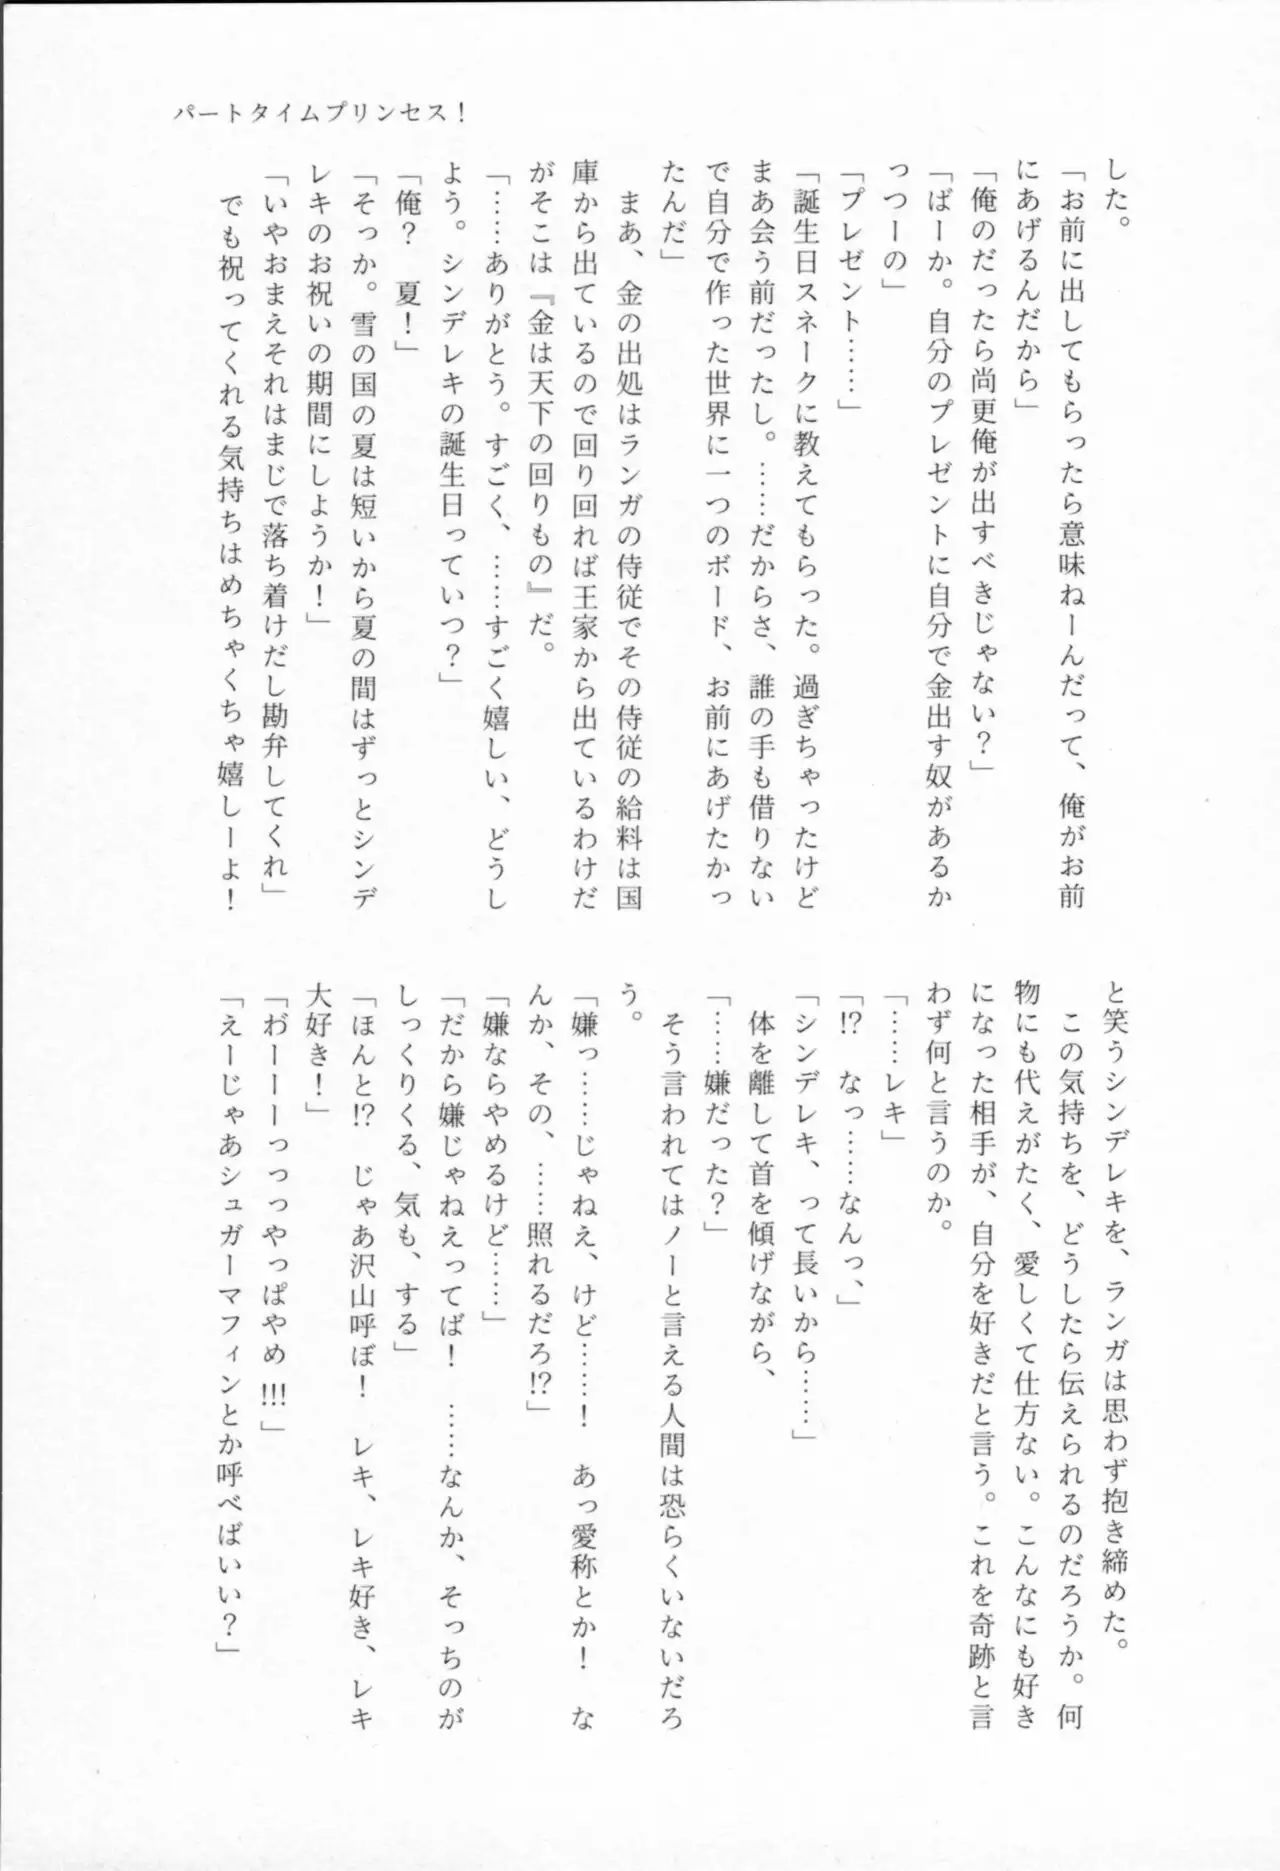 パートタイムプリンセス！
した。
「お前に出してもらったら意味ねーんだって、俺がお前
にあげるんだから」
「俺のだったら尚更俺が出すべきじゃない？」
「ばーか。自分のプレゼントに自分で金出す奴があるか
っつーの」
「プレゼント……」
「誕生日スネークに教えてもらった。過ぎちゃったけど
まあ会う前だったし。……だからさ、誰の手も借りない
で自分で作った世界に一つのボード、お前にあげたかっ
たんだ」
　まあ、金の出処はランガの侍従でその侍従の給料は国
庫から出ているので回り回れば王家から出ているわけだ
がそこは『金は天下の回りもの』だ。
「……ありがとう。すごく、……すごく嬉しい、どうし
よう。シンデレキの誕生日っていつ？」
「俺？　夏！」
「そっか。雪の国の夏は短いから夏の間はずっとシンデ
レキのお祝いの期間にしようか！」
「いやおまえそれはまじで落ち着けだし勘弁してくれ」
　でも祝ってくれる気持ちはめちゃくちゃ嬉しーよ！
と笑うシンデレキを、ランガは思わず抱き締めた。
　この気持ちを、どうしたら伝えられるのだろうか。何
物にも代えがたく、愛しくて仕方ない。こんなにも好き
になった相手が、自分を好きだと言う。これを奇跡と言
わず何と言うのか。
「……レキ」
「!?　なっ……なんっ、」
「シンデレキ、って長いから……」
　体を離して首を傾げながら、
「……嫌だった？」
　そう言われてはノーと言える人間は恐らくいないだろ
う。
「嫌っ……じゃねえ、けど……！　あっ愛称とか！　な
んか、その、……照れるだろ!?」
「嫌ならやめるけど……」
「だから嫌じゃねえってば！　……なんか、そっちのが
しっくりくる、気も、する」
「ほんと!?　じゃあ沢山呼ぼ！　レキ、レキ好き、レキ
大好き！」
「わ゙ーーーっっっやっぱやめ!!!」
「えーじゃあシュガーマフィンとか呼べばいい？」